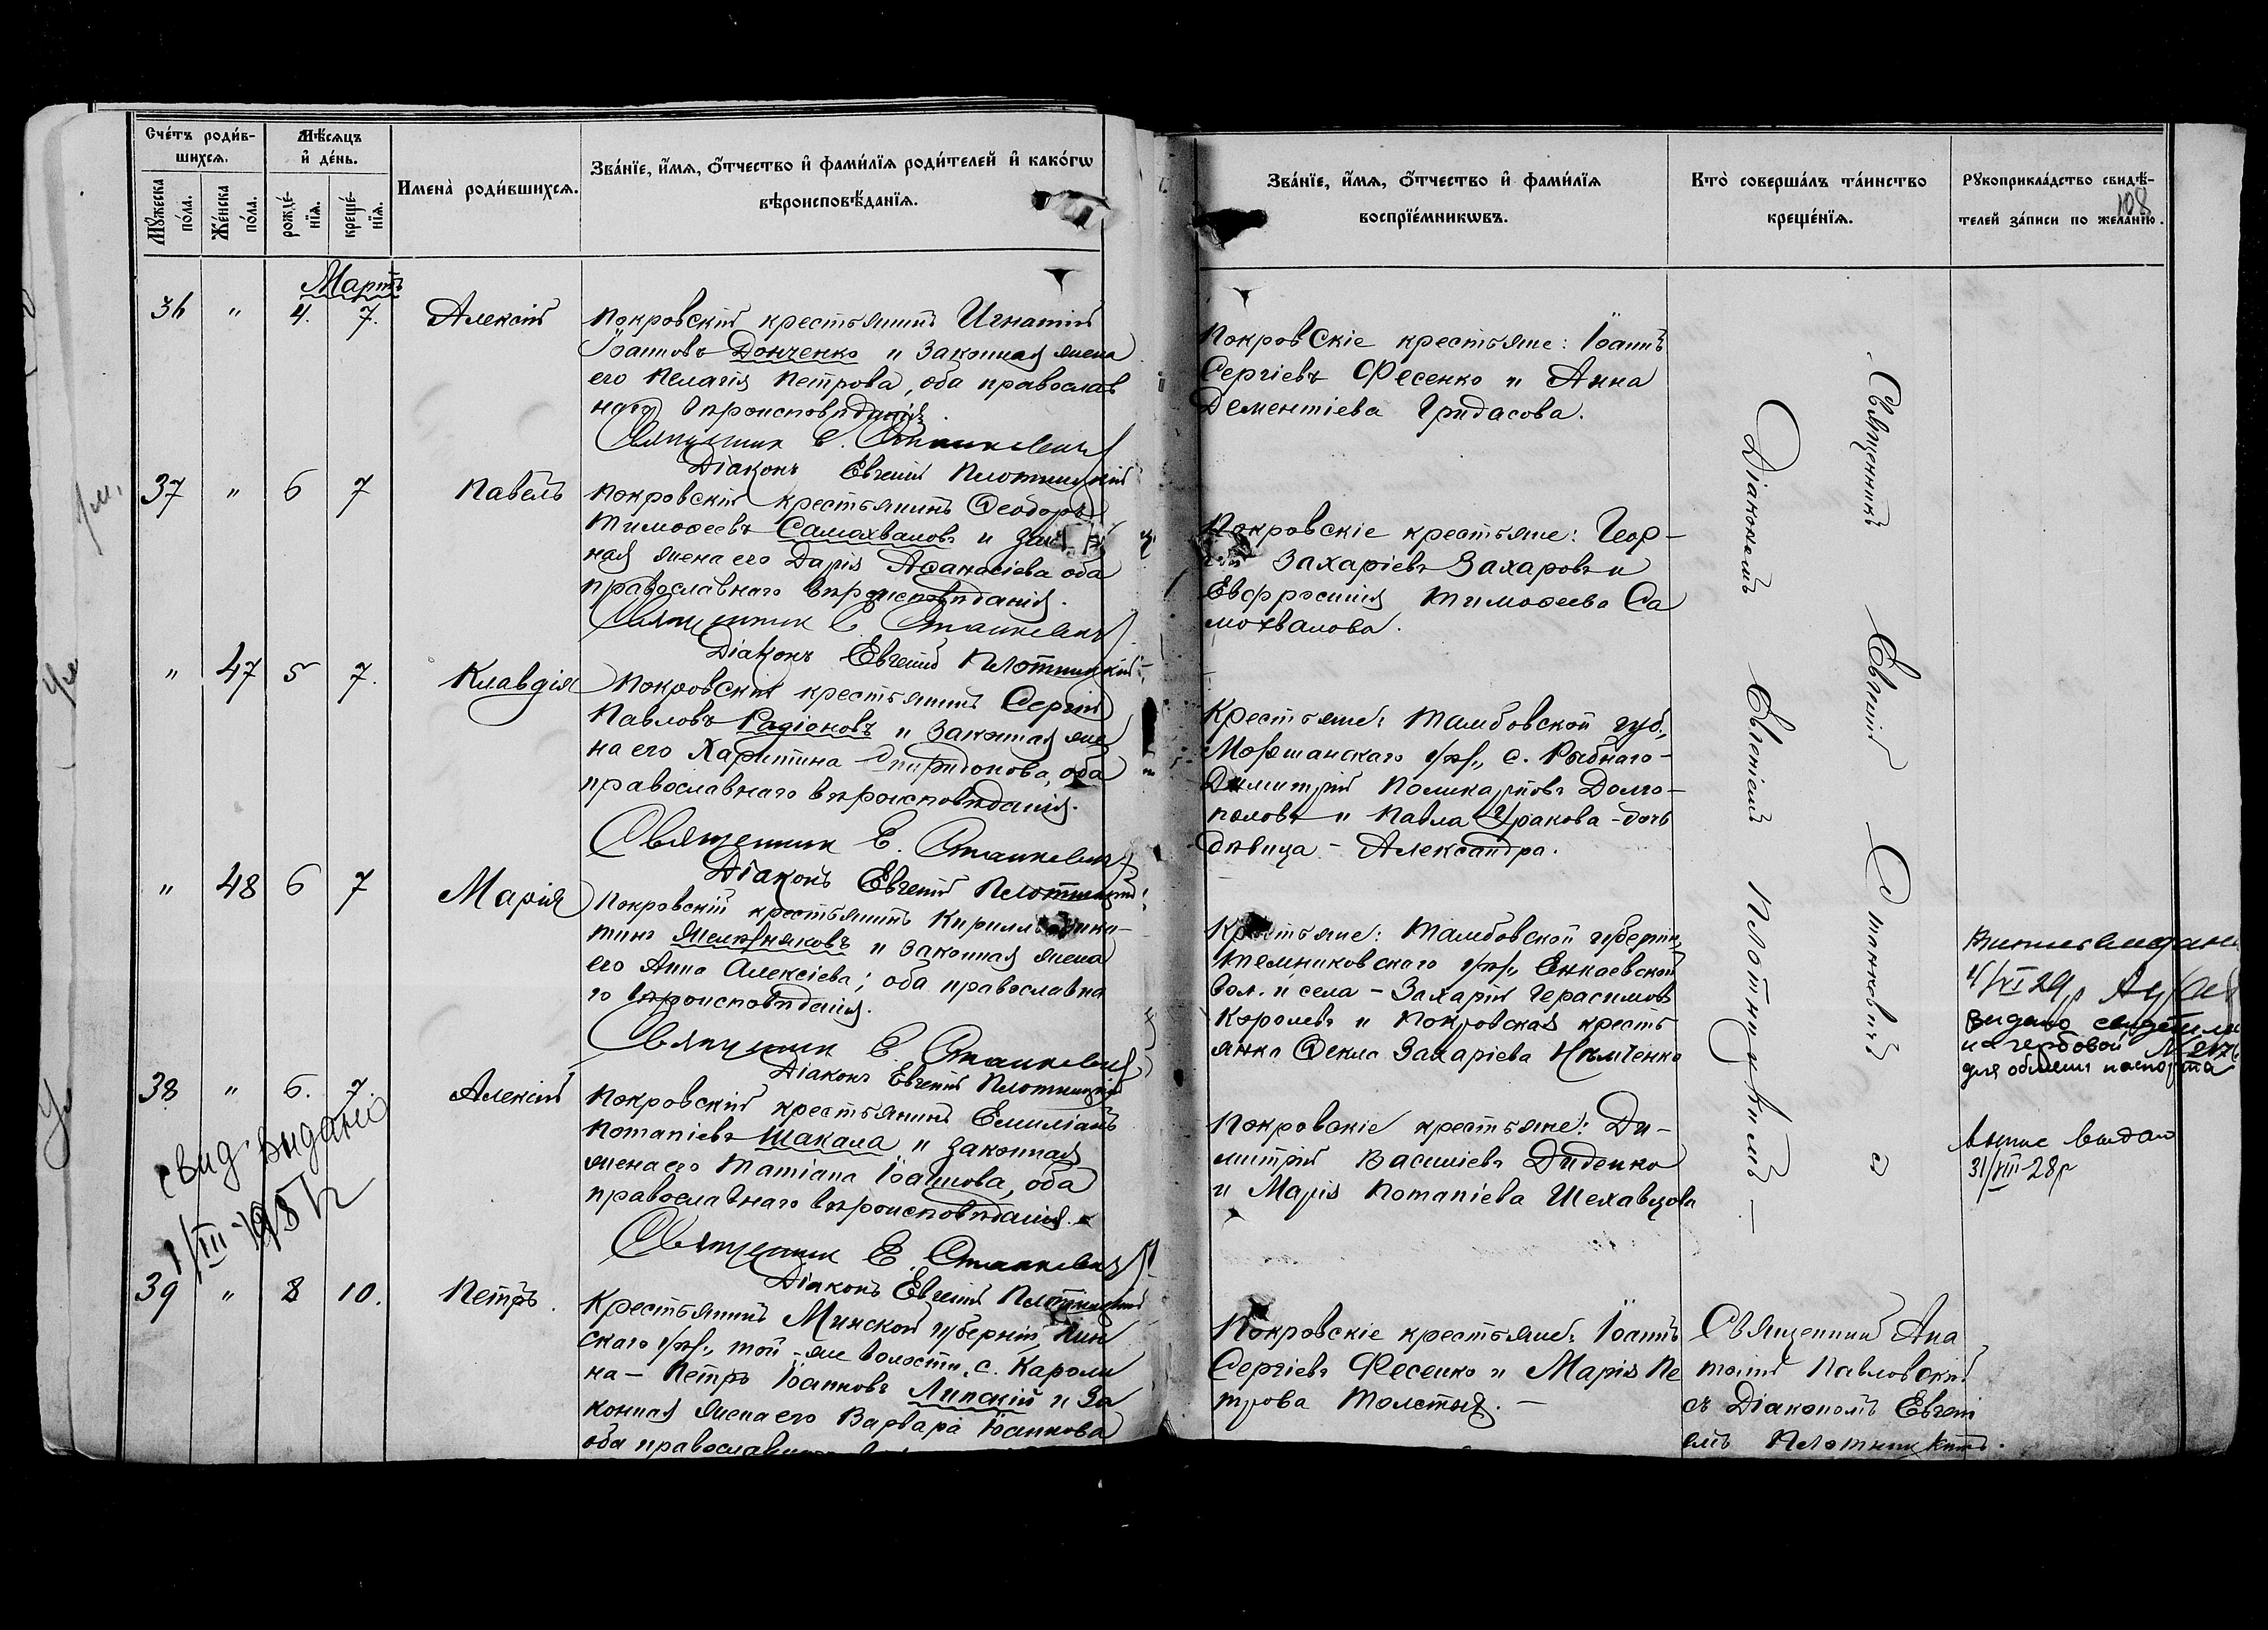 Счетъ родив-
шихся.
Мѣсяцъ
и день.
Мужеска
пола.
Женска
пола.
рожде-
нія.
креще-
нія.
Имена родившихся.
Званіе, имя, отчество и фамилія родителей и какого
вѣроисповѣданія.
Мартъ
36 " 4. 7.
Алексій
Покровскій крестьянинъ Игнатій
Іоанновъ Донченко и законная жена
его Пелагія Петрова, оба православ
наго вѣроисповѣданія.
Священник Е. Станкевич
Діаконъ Евгеній Плотницкій
37 " 6 7
Павелъ
Покровскій крестьянинъ Ѳеодоръ
Тимоѳеевъ Самохваловъ и
ная жена его Дарія Аѳанасіева оба
православнаго вѣроисповѣданія.
Священник Е. Станкевич
Діаконъ Евгеній Плотницкій
" 47 5 7.
Клавдія
Покровскій крестьянинъ Сергій
Павловъ Радіоновъ и законная же
на его Харитина Спиридонова, оба
православнаго вѣроисповѣданія.
Священник Е. Станкевич
Діаконъ Евгеній Плотницкій
" 48 6 7
Марія
Покровскій крестьянинъ Кириллъ
тинъ и законная жена
его Анна Алексіева; оба православна
го вѣроисповѣданія.
Священник Е. Станкевич
Діаконъ Евгеній Плотницкій
38 " 6. 7
Алексій
Покровскій крестьянинъ Емиліанъ
Потапіевъ Шакала и законная
жена его Татіана Іоаннова, оба
православнаго вѣроисповѣданія.
Священник Е. Станкевич
Діаконъ Евгеній Плотницкій
свид видано
39 " 8 10.
Петръ
Крестьянинъ Минской губерніи, Пин
скаго уѣз., той-же волости, с. Кароли
на - Петръ Іоанновъ Липскій и за
конная жена его Варвара Іоаннова
оба православнаго
Званіе, имя, отчество и фамилія
воспріемниковъ.
Кто совершалъ таинство
крещенія.
Рукоприкладство свидѣ-
телей записи по желанію.
108
Покровскіе крестьяне: Іоаннъ
Сергіевъ Фесенко и Анна
Дементіева Гридасова.
Покровскіе крестьяне: Геор-
гій Захаріевъ Захаровъ и
Евфросинія Тимоѳеева Са
мохвалова.
Крестьяне: Тамбовской губ.,
Моршанскаго уѣз., с. Рыбнаго -
Димитрій Поликарповъ Долго-
половъ и Павла Уракова - дочь
дѣвица - Александра.
Крестьяне: Тамбовской губерніи,
Темниковскаго уѣз., Енкаевской
вол. и села - Захарій Герасимовъ
Королевъ и Покровская кресть
янка Ѳекла Захаріева
Покровскіе крестьяне: Ди-
митрій Василіевъ Диденко
и Марія Потапіева Шелавцова
Покровскіе крестьяне: Іоаннъ
Сергіевъ Фесенко и Марія Пе
трова Толстыя. -
Священникъ Евгеній Станкевичъ съ
Діакономъ Евгеніемъ Плотницкимъ -
Священникъ Ана
толій Павловскій
съ Діакономъ Евгені
емъ Плотницкимъ.
4/VI 29р
видано
на гербовой
для обмена паспорта
выпис выдано
31/VIII-28р